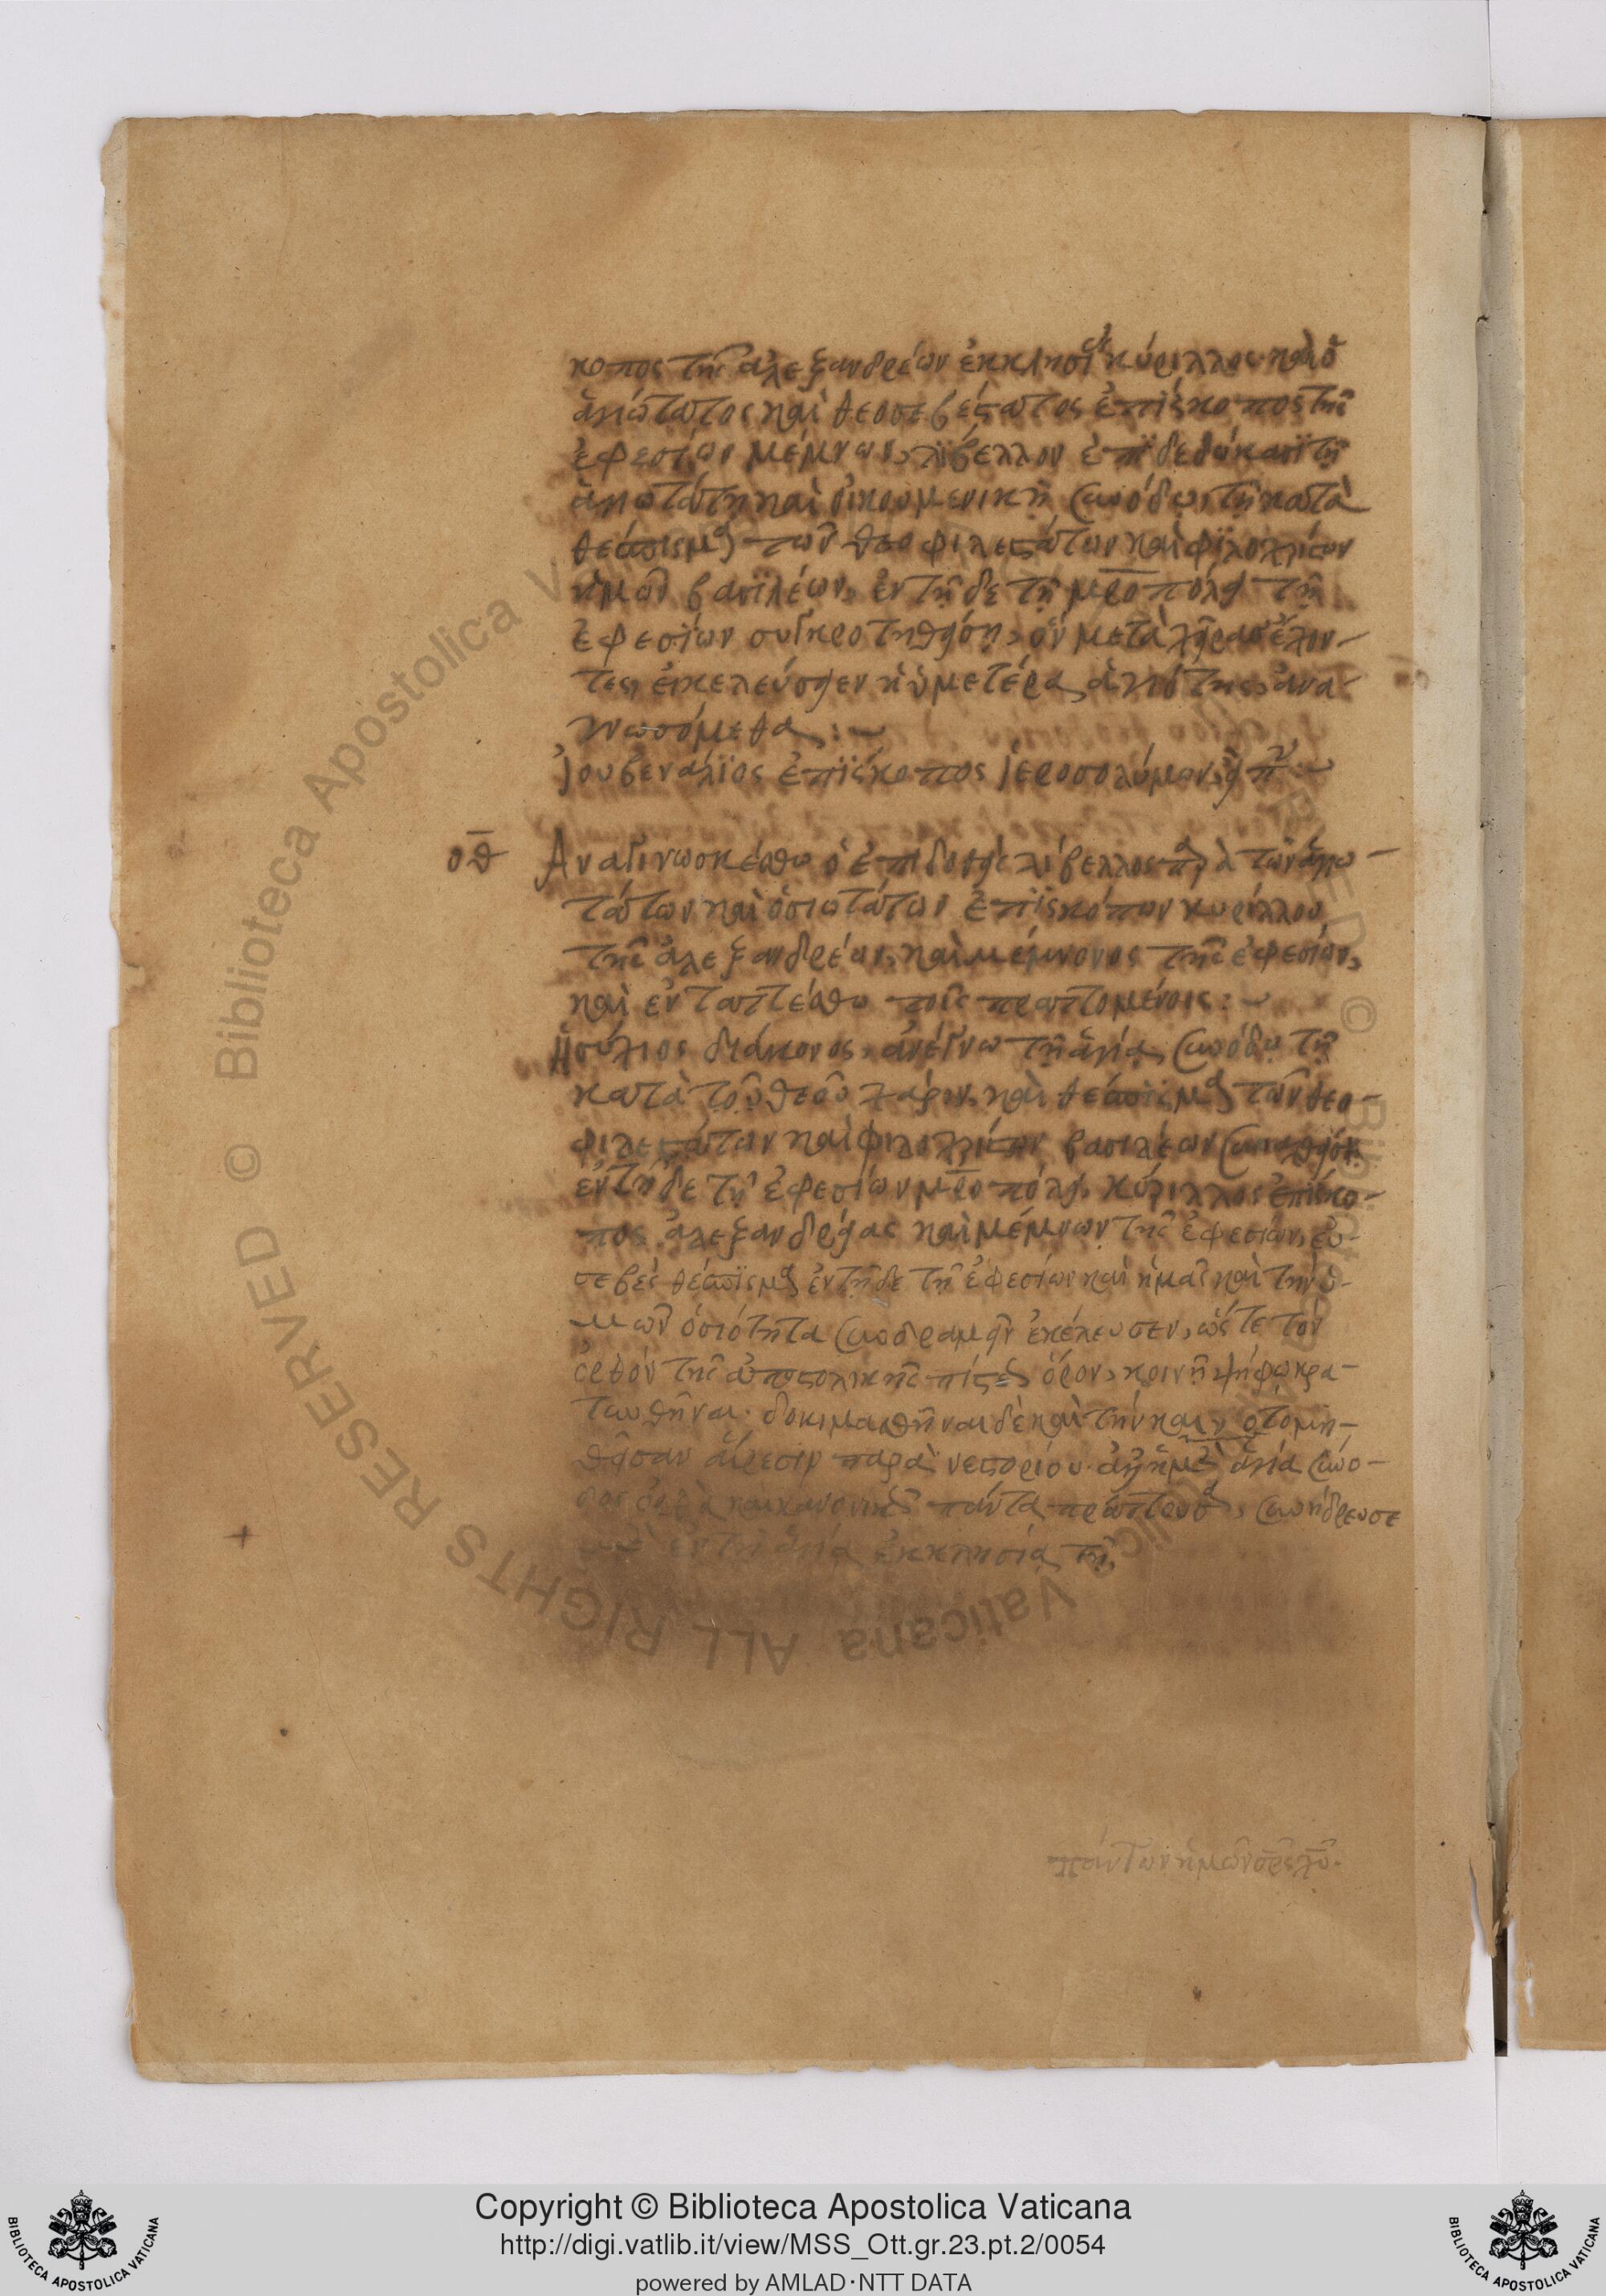 κοπος τῆς ἀλεξανδρέων ἐκκλησίας κύριλλος· καὶ ὁ
ἁγιώτατος καὶ θεοσεβέστατος ἐπίσκοπος τῆς
ἐφεσίων μέμνων, λίβελλον ἐπιδεδώκασι τῇ
ἁγιωτάτῃ καὶ οἰκουμενικῇ συνόδῳ, τῇ κατὰ
θέσπισμα τῶν θεοφιλεστάτων καὶ φιλοχρίστων
ἡμῶν βασιλέων, ἐν τῇδε τῇ μητροπόλει τῇ
ἐφεσίων συγκροτηθείσῃ, ὃν μετὰ χεῖρας ἔχον-
τες, εἰ κελεύσειεν ἡ ὑμετέρα ἁγιότης, ἀνα-
γνωσόμεθα :~
Ἰουβενάλιος ἐπίσκοπος Ἱεροσολύμων, εἶπεν :~
οθ Ἀναγινωσκέσθω ὁ ἐπιδοθεὶς λίβελλος παρὰ τῶν ἁγιω-
τάτων καὶ ὁσιωτάτων ἐπισκόπων κυρίλλου
τῆς ἀλεξανδρέων, καὶ μέμνονος τῆς ἐφεσίων,
καὶ ἐνταττέσθω τοῖς πραττομένοις :~
Ἡσύχιος διάκονος, ἀνέγνω τῇ ἁγίᾳ συνόδῳ τῇ
κατὰ τοῦ θεοῦ χάριν, καὶ θέσπισμα τῶν θεο-
φιλεστάτων καὶ φιλοχρίστων βασιλέων συναχθείσῃ
ἐν τῇδε τῇ ἐφεσίων μητροπόλει, κύριλλος ἐπίσκο-
πος ἀλεξανδρείας καὶ μέμνων τῆς ἐφεσίων, εὐ-
σεβὲς θέσπισμα ἐν τῇδε τῇ ἐφεσίων καὶ ἡμᾶς καὶ τὴν ὑ-
μῶν ὁσιότητα συνδραμεῖν ἐκέλευσεν, ὥστε τὸν
ὀρθὸν τῆς ἀποστολικῆς πίστεως ὅρον, κοινῇ ψήφῳ κρα-
τυνθῆναι· δοκιμασθῆναι δὲ καὶ τὴν καινοτομη-
θεῖσαν αἵρεσιν παρὰ νεστορίου· ἁγία συνο-
δος ὀρθὰ καὶ κανονικῶς πάντα πράττουσα, συνήδρευσε
ἐν τῇ ἁγίᾳ ἐκκλησίᾳ τῇ
πάντων ἡμῶν σρς χυ.
Copyright © Biblioteca Apostolica Vaticana
http://digi.vatlib.it/view/MSS_Ott.gr.23.pt.2/0054
powered by AMLAD·NTT DATA
BIBLIOTECA APOSTOLICA VATICANA
BIBLIOTECA APOSTOLICA VATICANA
© Biblioteca Apostolica Vaticana ALL RIGHTS RESERVED